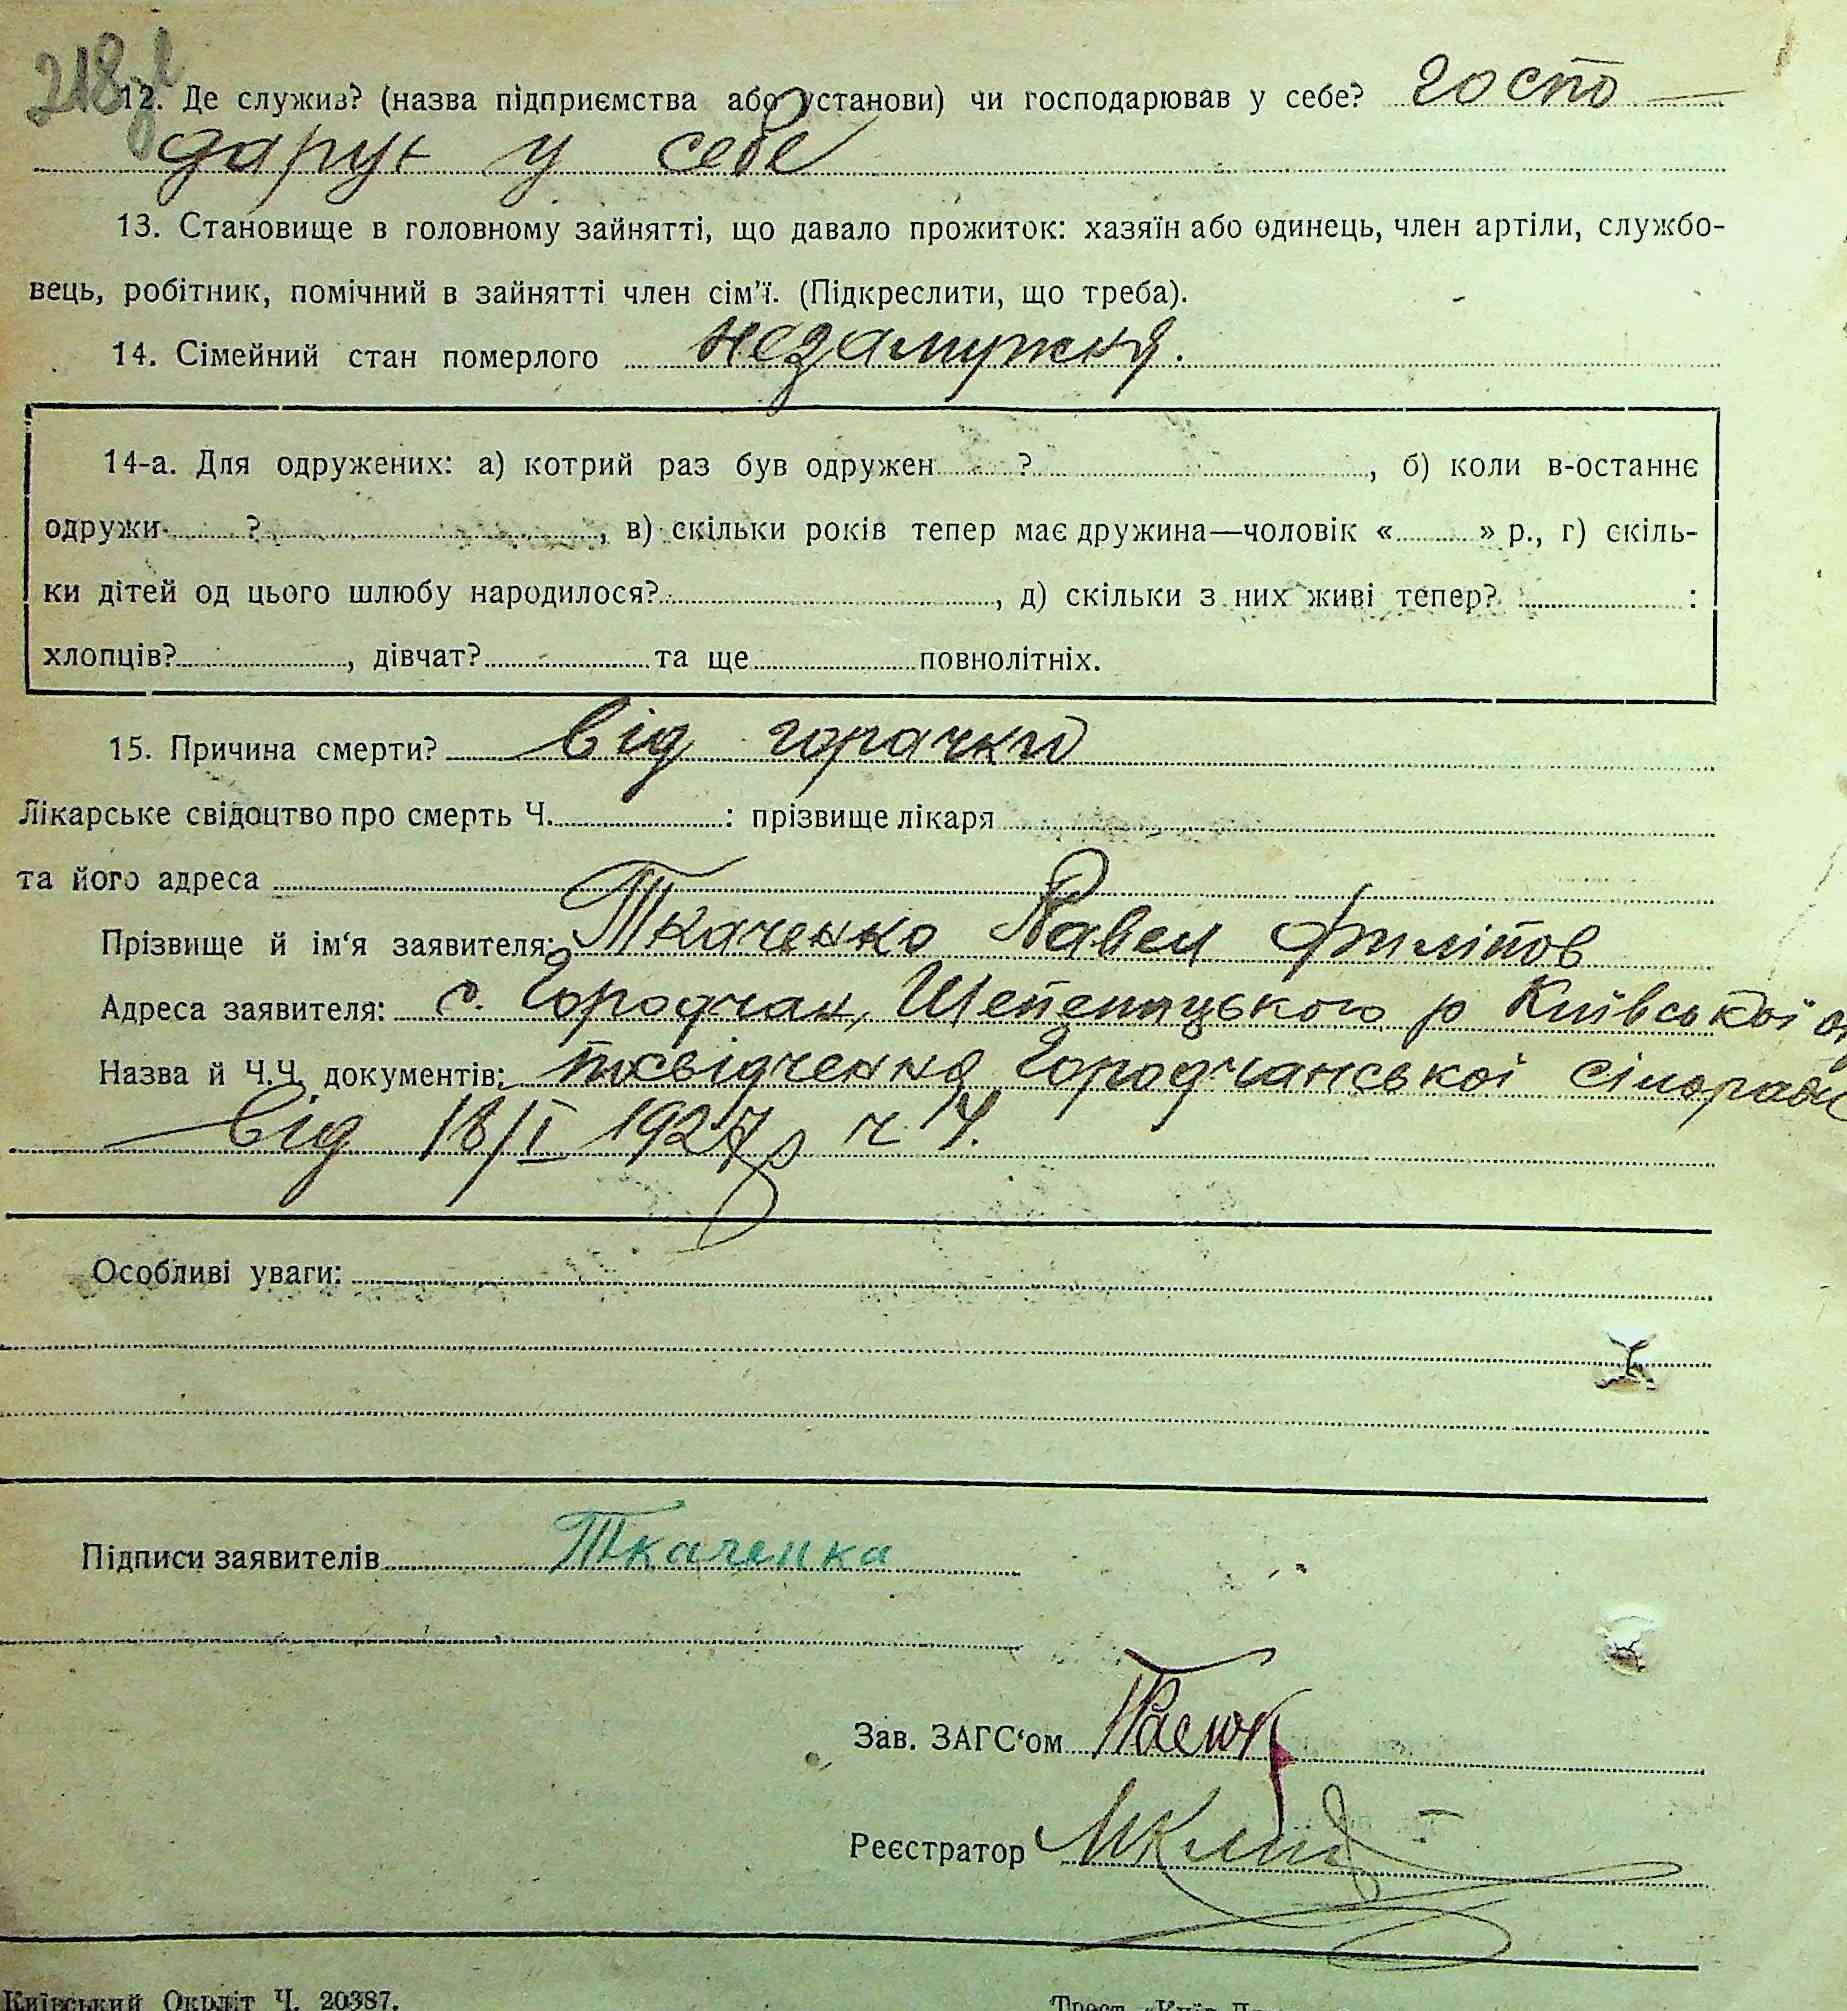 218
12. Де служив? (назва підприємства або установи) чи господарював у себе? госпо
дарує у себе
13. Становище в головному зайнятті, що давало прожиток: хазяїн або одинець, член артіли, службо-
вець, робітник, помічний в зайнятті член сім'ї. (Підкреслити, що треба).
14. Сімейний стан померлого незамужня.
14-а. Для одружених: а) котрий раз був одружен ? , б) коли в-останнє
одружи- ? , в) скільки років тепер має дружина—чоловік « » р., г) скіль-
ки дітей од цього шлюбу народилося? , д) скільки з них живі тепер? :
хлопців? , дівчат? та ще повнолітніх.
15. Причина смерти? від горачки
Лікарське свідоцтво про смерть Ч. : прізвище лікаря
та його адреса
Прізвище й ім‘я заявителя: Ткаченко Павел Филіпов
Адреса заявителя: с. Городчан, Шепелицького р Київської
Назва й Ч.Ч. документів: посвідчення Городчанської сільради
від 18/I 1927 р ч 4.
Особливі уваги:
Підписи заявителів Ткаченка
Зав. ЗАГС‘ом
Реєстратор
Київський Окрліт Ч. 20387.